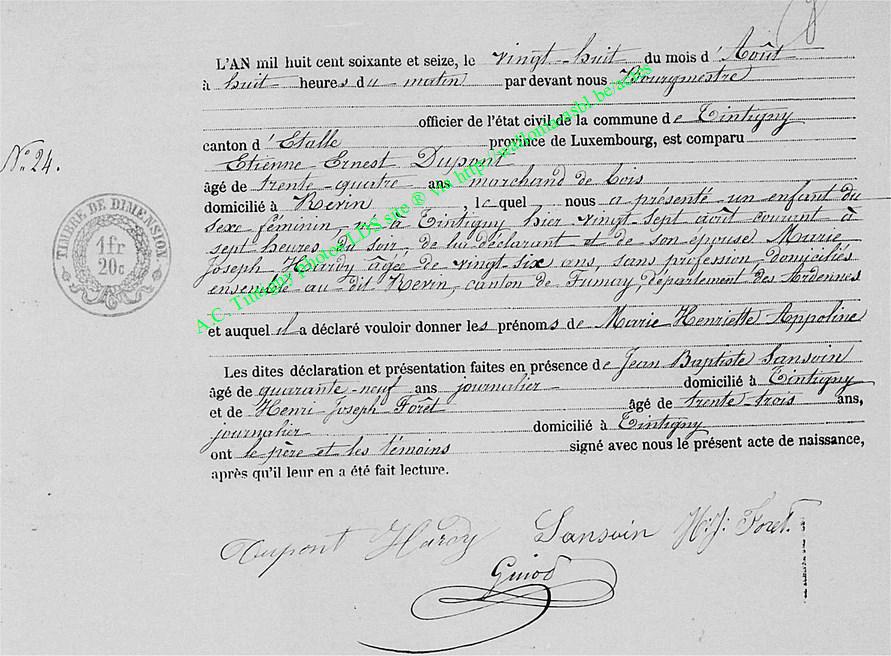 L'AN mil huit cent soixante et seize, le vingt-huit du mois d'Août
à huit heures du matin par devant nous Bourgmestre
officier de l'état civil de la commune de Tintigny
canton d'Etalle province de Luxembourg, est comparu
Etienne Ernest Dupont
N° 24.
âgé de trente-quatre ans marchand de bois
domicilié à Revin, lequel nous a présenté un enfant du
sexe féminin, né à Tintigny hier vingt-sept août courant à
sept heures du soir, de lui déclarant et de son epouse Marie
Joseph Hardy âgée de vingt six ans, sans profession, domiciliés
ensemble au dit Revin, canton de Fumay, département des Ardennes
et auquel il a déclaré vouloir donner les prénoms de Marie Henriette Appoline
Les dites déclaration et présentation faites en présence de Jean Baptiste Sansoin
âgé de quarante-neuf ans journalier domicilié à Tintigny
et de Henri Joseph Forêt âgé de trente-trois ans,
journalier domicilié à Tintigny
ont le père et les témoins signé avec nous le présent acte de naissance,
après qu'il leur en a été fait lecture.
Dupont Hardy Sansoin H.J. Foret.
TIMBRE DE DIMENSION
1 fr
20c